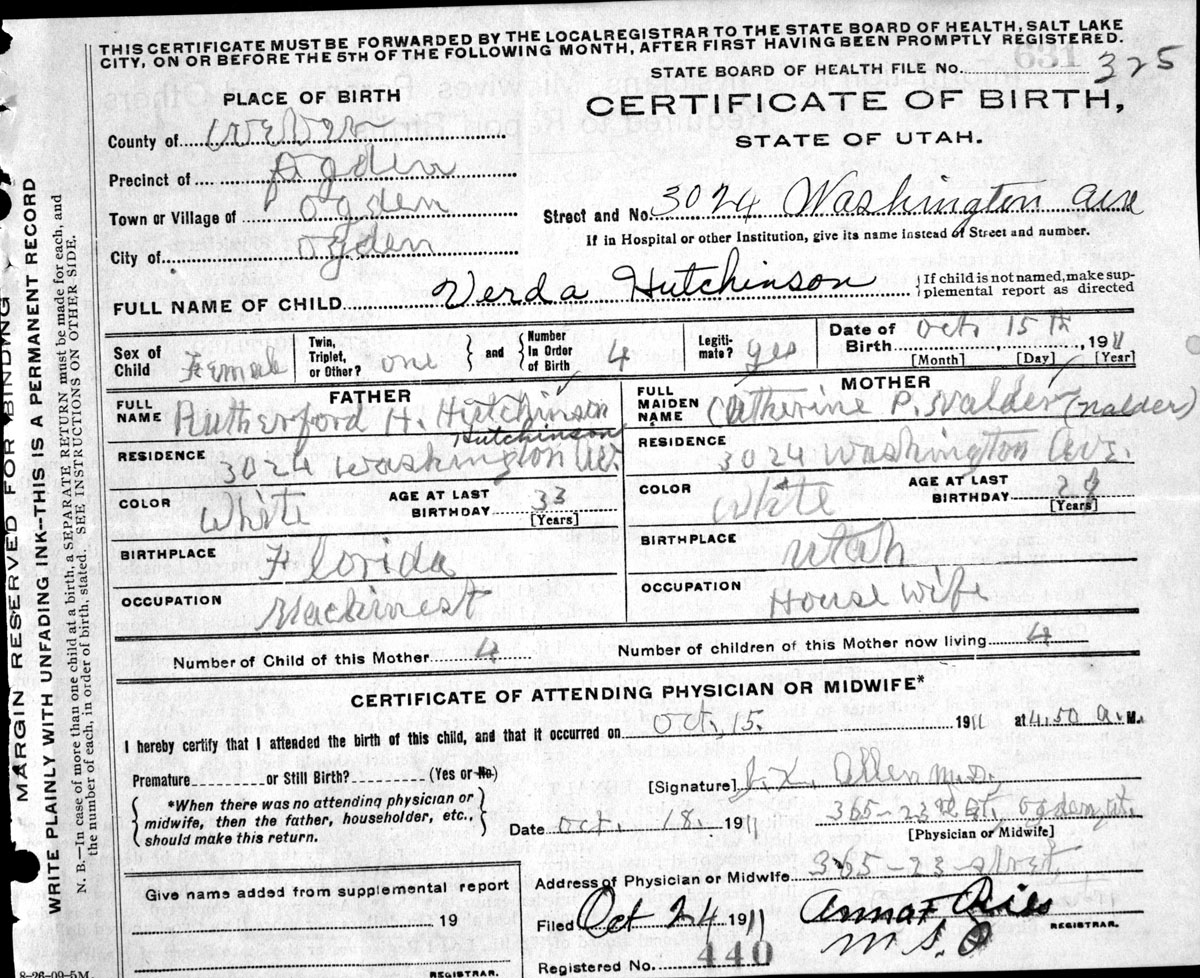 THIS CERTIFICATE MUST BE FORWARDED BY THE LOCAL REGISTRAR TO THE STATE BOARD OF HEALTH, SALT LAKE
CITY, ON OR BEFORE THE 5TH OF THE FOLLOWING MONTH, AFTER FIRST HAVING BEEN PROMPTLY REGISTERED.
631
STATE BOARD OF HEALTH FILE No. 325
PLACE OF BIRTH
CERTIFICATE OF BIRTH,
STATE OF UTAH.
County of Weber
Precinct of Ogden
Town or Village of Ogden
City of Ogden
Street and No. 3024 Washington Ave
If in Hospital or other Institution, give its name instead of Street and number.
FULL NAME OF CHILD Verda Hutchinson
If child is not named, make sup-
plemental report as directed
Sex of Child Female
Twin, Triplet, or Other? one
and Number In Order of Birth 4
Legiti-mate? yes
Date of Birth Oct. 15th, 1911
[Month] [Day] [Year]
FATHER
MOTHER
FULL NAME Rutherford H. Hutchinson
Hutchinson
FULL MAIDEN NAME Catherine P. Nalder (Nalder)
RESIDENCE 3024 Washington Av.
RESIDENCE 3024 Washington Ave.
COLOR White
AGE AT LAST BIRTHDAY 33 [Years]
COLOR White
AGE AT LAST BIRTHDAY [Years]
BIRTHPLACE Florida
BIRTHPLACE Utah
OCCUPATION Mackinest
OCCUPATION House wife
Number of Child of this Mother 4
Number of children of this Mother now living 4
CERTIFICATE OF ATTENDING PHYSICIAN OR MIDWIFE*
I hereby certify that I attended the birth of this child, and that it occurred on Oct. 15. 1911 at 4.50 A. M.
Premature or Still Birth? (Yes or No)
*When there was no attending physician or
midwife, then the father, householder, etc.,
should make this return.
[Signature] Allen M.D.
365-23rd St. Ogden, Ut.
[Physician or Midwife]
Date Oct. 18. 1911
Address of Physician or Midwife 365-23-street
Give name added from supplemental report
19
REGISTRAR.
Filed Oct 24 1911
Anna F. Ries
REGISTRAR.
Registered No. 440
8-26-09-5M.
MARGIN RESERVED FOR BINDING
WRITE PLAINLY WITH UNFADING INK--THIS IS A PERMANENT RECORD
N. B.--In case of more than one child at a birth, a SEPARATE RETURN must be made for each, and
the number of each, in order of birth, stated. SEE INSTRUCTIONS ON OTHER SIDE.